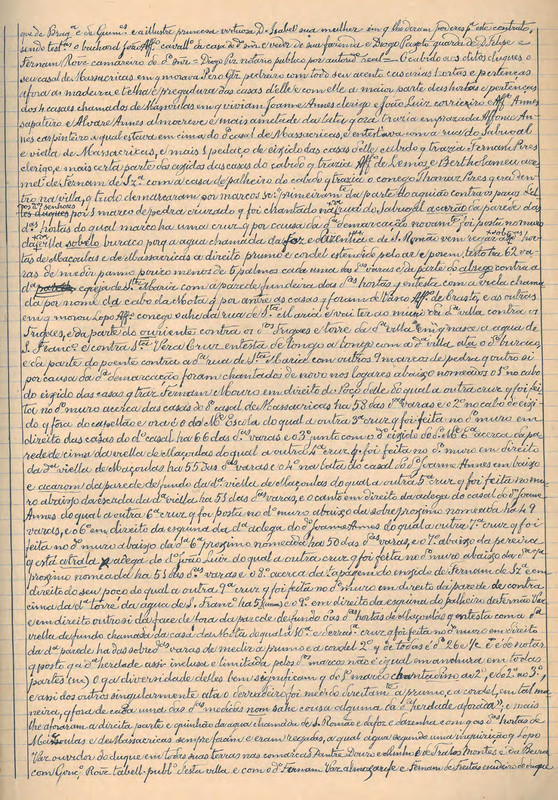 que de Brag.ª e de Guim.es e a illustre princesa virtuosa D. Isabel sua mulher em q lhe deram poderes p.ª este contrato,
sendo test.as o bacharel João Aff.º cavall.º da casa de d.º snr. e veor de sua fazenda e Diogo Payoto guarda de D. Felipe =
Fernam Rove camareiro do d.º snr. = Diogo Piz notario publico per autorid.e real = O cabido aos ditos duques o
seu casal de Massacricas em q morava Pero Giz pedreiro com todo seu acento e casarias hortas e pertenças
afora as madeira e telha e pregadura das casas d'elle e com elle a maior parte das hortas e pertenças
dos h casaes chamados de Maçoulas em q viviam Joanne Annes clerigo e João Luiz corrieiro Aff.º Annes
sapateiro e Alvare Annes almocreve e mais ametade da leira q ora trazia emprazada Affonso An-
nes carpinteiro a qual estava em cima do d.º casal de Massacricas, e entestava com a rua do Sabugal
e viella de Massacricas, e mais 1 pedaço de eixido das casas d'elle cabido q trazia Fernam Pires
clerigo, e mais certa parte dos eixidos das casas do cabido q trazia Aff.º de Lemos, e Bertholameu a
met.e de Fernam de Sz.ª com a casa de palheiro do cabido q trazia o conego Thomaz Pires q era den-
tro na villa, q tudo demarcaram por marcos s.c. "primeiram.te da parte do aguião contra os paços del-
les duques por 1 marco de pedra cruzado q foi chantado na rua do Sabugal acarão da parede das
d.as hortas do qual marco ha uma cruz q por causa da d.ª demarcação novam.te foi posta no muro
da villa sobelo buraco por q a agua chamada da foz e da zenha e de S. Romão vem regar as
hortas de Maçoulas e de Massacricas a direito prumo e cordel estendido pelo ar e por em testo tra 62 va-
ras de medir panno pouco menos de 1/2 palmos cada uma das d.as varas e da parte do abrego contra a
d.ª egreja de S.ta Maria com a parede fundeira das d.as hortas q entesta com a viela chama
da por nome do cabo da Mota q por antre as casas q foram de Vasco Aff.º de Crasto, e as outras
em q morou Lopo Aff.º conego sahe da rua de S.ta Maria e vai ter ao muro da d.ª villa contra os
Trigaes, e da parte do ouriente contra os d.os Trigaes e torre da d.ª villa em q nasce a agua de
S. Franc.º e contra S.ta Vera Cruz entesta de longo a longo com a d.ª villa ata o d.º buraco,
e da parte do poente contra a d.ª rua de S.ta Maria com outros 9 marcos de pedra q outro si
por causa da d.ª demarcação foram chantados de novo nos logares abaixo nomeados o 1.º no cabo
do eixido das casas q traz Fernam Mouro em direito do Poço d'elle do qual a outra cruz q foi fei
ta no d.º muro acerca das casas do d.º casal de Massacricas ha 58 d.as varas e o 2.º no cabo do eixi-
do q fora do capellão e ora é do M.e Escola do qual a outra 3.ª cruz q foi feita no d.º muro em
direito das casas do d.º casal ha 66 d.as varas e o 3.º junto com o d.º eixido do d.º M.e E.ª acerca da pa-
rede de cima da viella de Maçoulas do qual a outra 4.ª cruz q foi feita no d.º muro em direito
da d.ª viella de Maçoulas ha 55 d.as varas e o 4.º na bata do casal do d.º Joanne Annes em baixo
e acarom da parede de fundo da d.ª viella de Maçoulas do qual a outra 5.ª cruz q foi feita no mu-
ro abaixo da escada da d.ª viella ha 53 das d.as varas, e o canto em direito da adega do casal do d.º Joane
Annes do qual a outra 6.ª cruz q foi posta no d.º muro abaixo da sobre proximo nomeada ha 49
varas, e o 6.º em direito da esquina da d.ª adega do d.º Joanne Annes do qual a outra 7.ª cruz q foi
feita no d.º muro abaixo da d.ª 6.ª proximo nomeada ha 50 das d.as varas, e o 7.º abaixo da pereira
q está atrás da adega do d.º João Luiz do qual a outra cruz q foi feita no d.º muro abaixo da d.ª 7.ª
proximo nomeada ha 51 das d.as varas e o 8.º acerca da topagem do eixido de Fernam de Sz.ª em
direito do seu poço do qual a outra 9.ª cruz q foi feita no d.º muro em direito da parede de contra
cima da d.ª torre da agua de S. Franc.º ha 51 e o 9.º em direito da esquina do palheiro de Fernão Vaz
e em direito outro si da face de fora da parede de fundo das d.as hortas de Maçoulas q entesta com a d.ª
viella de fundo chamada da casa da Mota do qual a 10.ª e derrad.ª cruz q foi feita no d.º muro em direito
da d.ª parede ha das sobred.as varas de medir a prumo e a cordel 2 q de todas é o d.º 26 e 1/2 e é de notar
q posto q a d.ª herdade assi inclusa e limitada pelos d.os marcos não é igual em anchura em todas
partes (sic) o q a diversidade delles bem significam q do 1.º marco chantado in 2.º, e do 2.º ao 3.º,
e assi dos outros singularmente ata o derradeiro foi medido direitam.te a prumo, a cordel, em tal ma-
neira, q fora de cada uma das d.as medições nom sahe cousa alguma da d.ª herdade aforada", e mais
lhe aforaram a direita parte e quinhão da agua chamada de S. Romão e da foz e dazenha com q as d.as hortas de
Massoulas e de Massacricas sempre foram e eram regadas, a qual agua segundo uma inquirição q Lopo
Vaz ouvidor do duque em todas suas terras nas comarcas d'antre Douro e Minho e de Tralos Montes e da Beira
com Gonç.º Rove. tabell. publ.º d'esta villa e com o d.º Fernam Vaz almoxarife e Fernam de Freitas escudeiro do duque